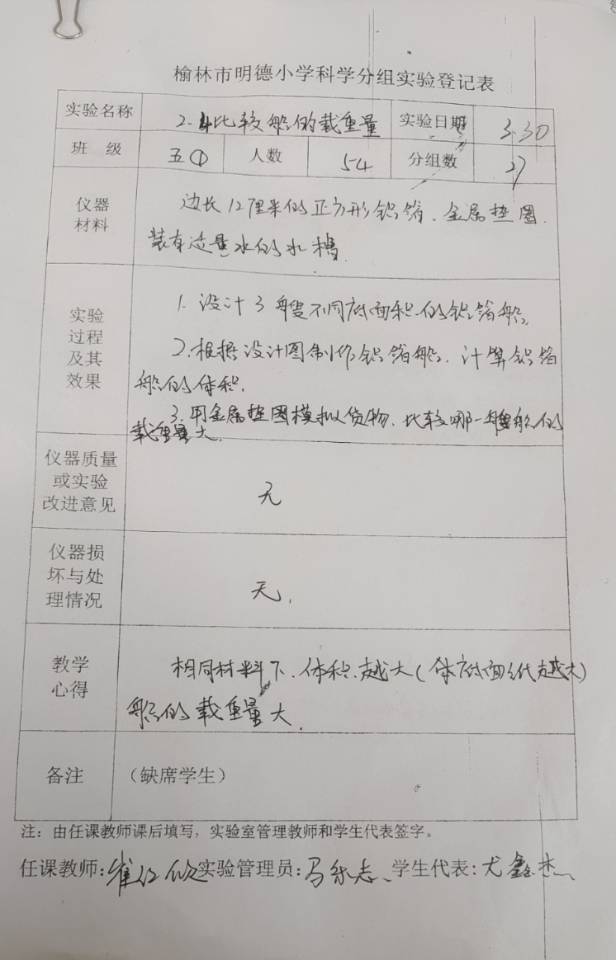 榆林市明德小学科学分组实验登记表
实验名称 2.4比较船的载重量 实验日期 3.30
班 级 五① 人数 54 分组数 27
仪器材料 边长12厘米的正方形铝箔、金属垫圈
装有适量水的水槽
实验过程及其效果 1.设计3艘不同底面积的铝箔船。
2.根据设计图制作铝箔船、计算铝箔
船的体积.
3.用金属垫圈模拟货物、比较哪一艘船的
载重量大.
仪器质量或实验改进意见 无
仪器损坏与处理情况 无.
教学心得 相同材料下、体积越大(体底面积越大)
船的载重量大
备注 (缺席学生)
注：由任课教师课后填写，实验室管理教师和学生代表签字。
任课教师: 实验管理员: 学生代表:尤鑫杰